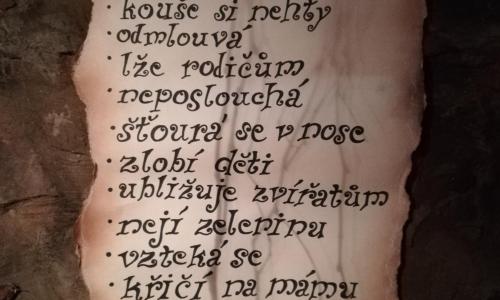 · kouše si nehty
· odmlouvá
· lže rodičům
· neposlouchá
· šťourá se v nose
· zlobí děti
· ubližuje zvířatům
· nejí zeleninu
· vzteká se
· křičí na mámu